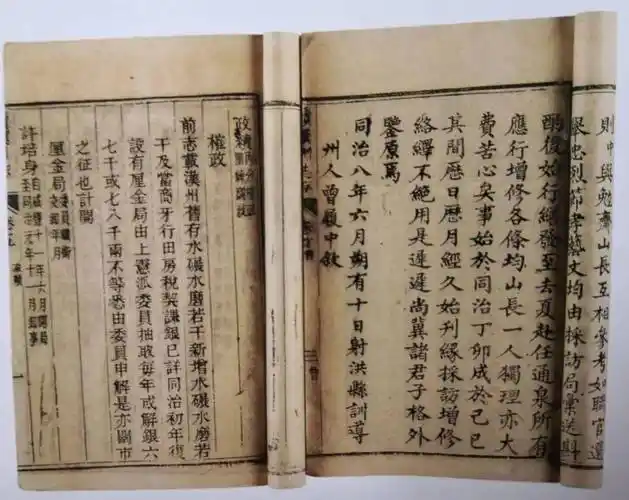 則中與齋山長互相參考如職官選
舉忠烈節孝藝文均由採訪局彙送斟
酌復始行繕發至去夏赴任通泉所有
應行增修各條均山長一人獨理亦大
費苦心矣事始於同治丁卯成於己巳
其間歷日歷月經久始刊緣採訪增修
絡繹不絕用是遲遲尚冀諸君子格外
鑒原焉
同治八年六月朔有十日射洪縣訓導
州人曾履中敘
三
政績
榷政
前志載漢州舊有水碾水磨若干新增水碾水磨若
干及當商牙行田房稅契課銀已詳同治初年復
設有厘金局由上憲派委員抽取每年或解銀六
七千或七八千兩不等悉由委員申解是亦關市
之征也計開
厘金局
委員職銜
交卸年月
許培身
自咸豐十年六月開局
至同治元年十一月卸事